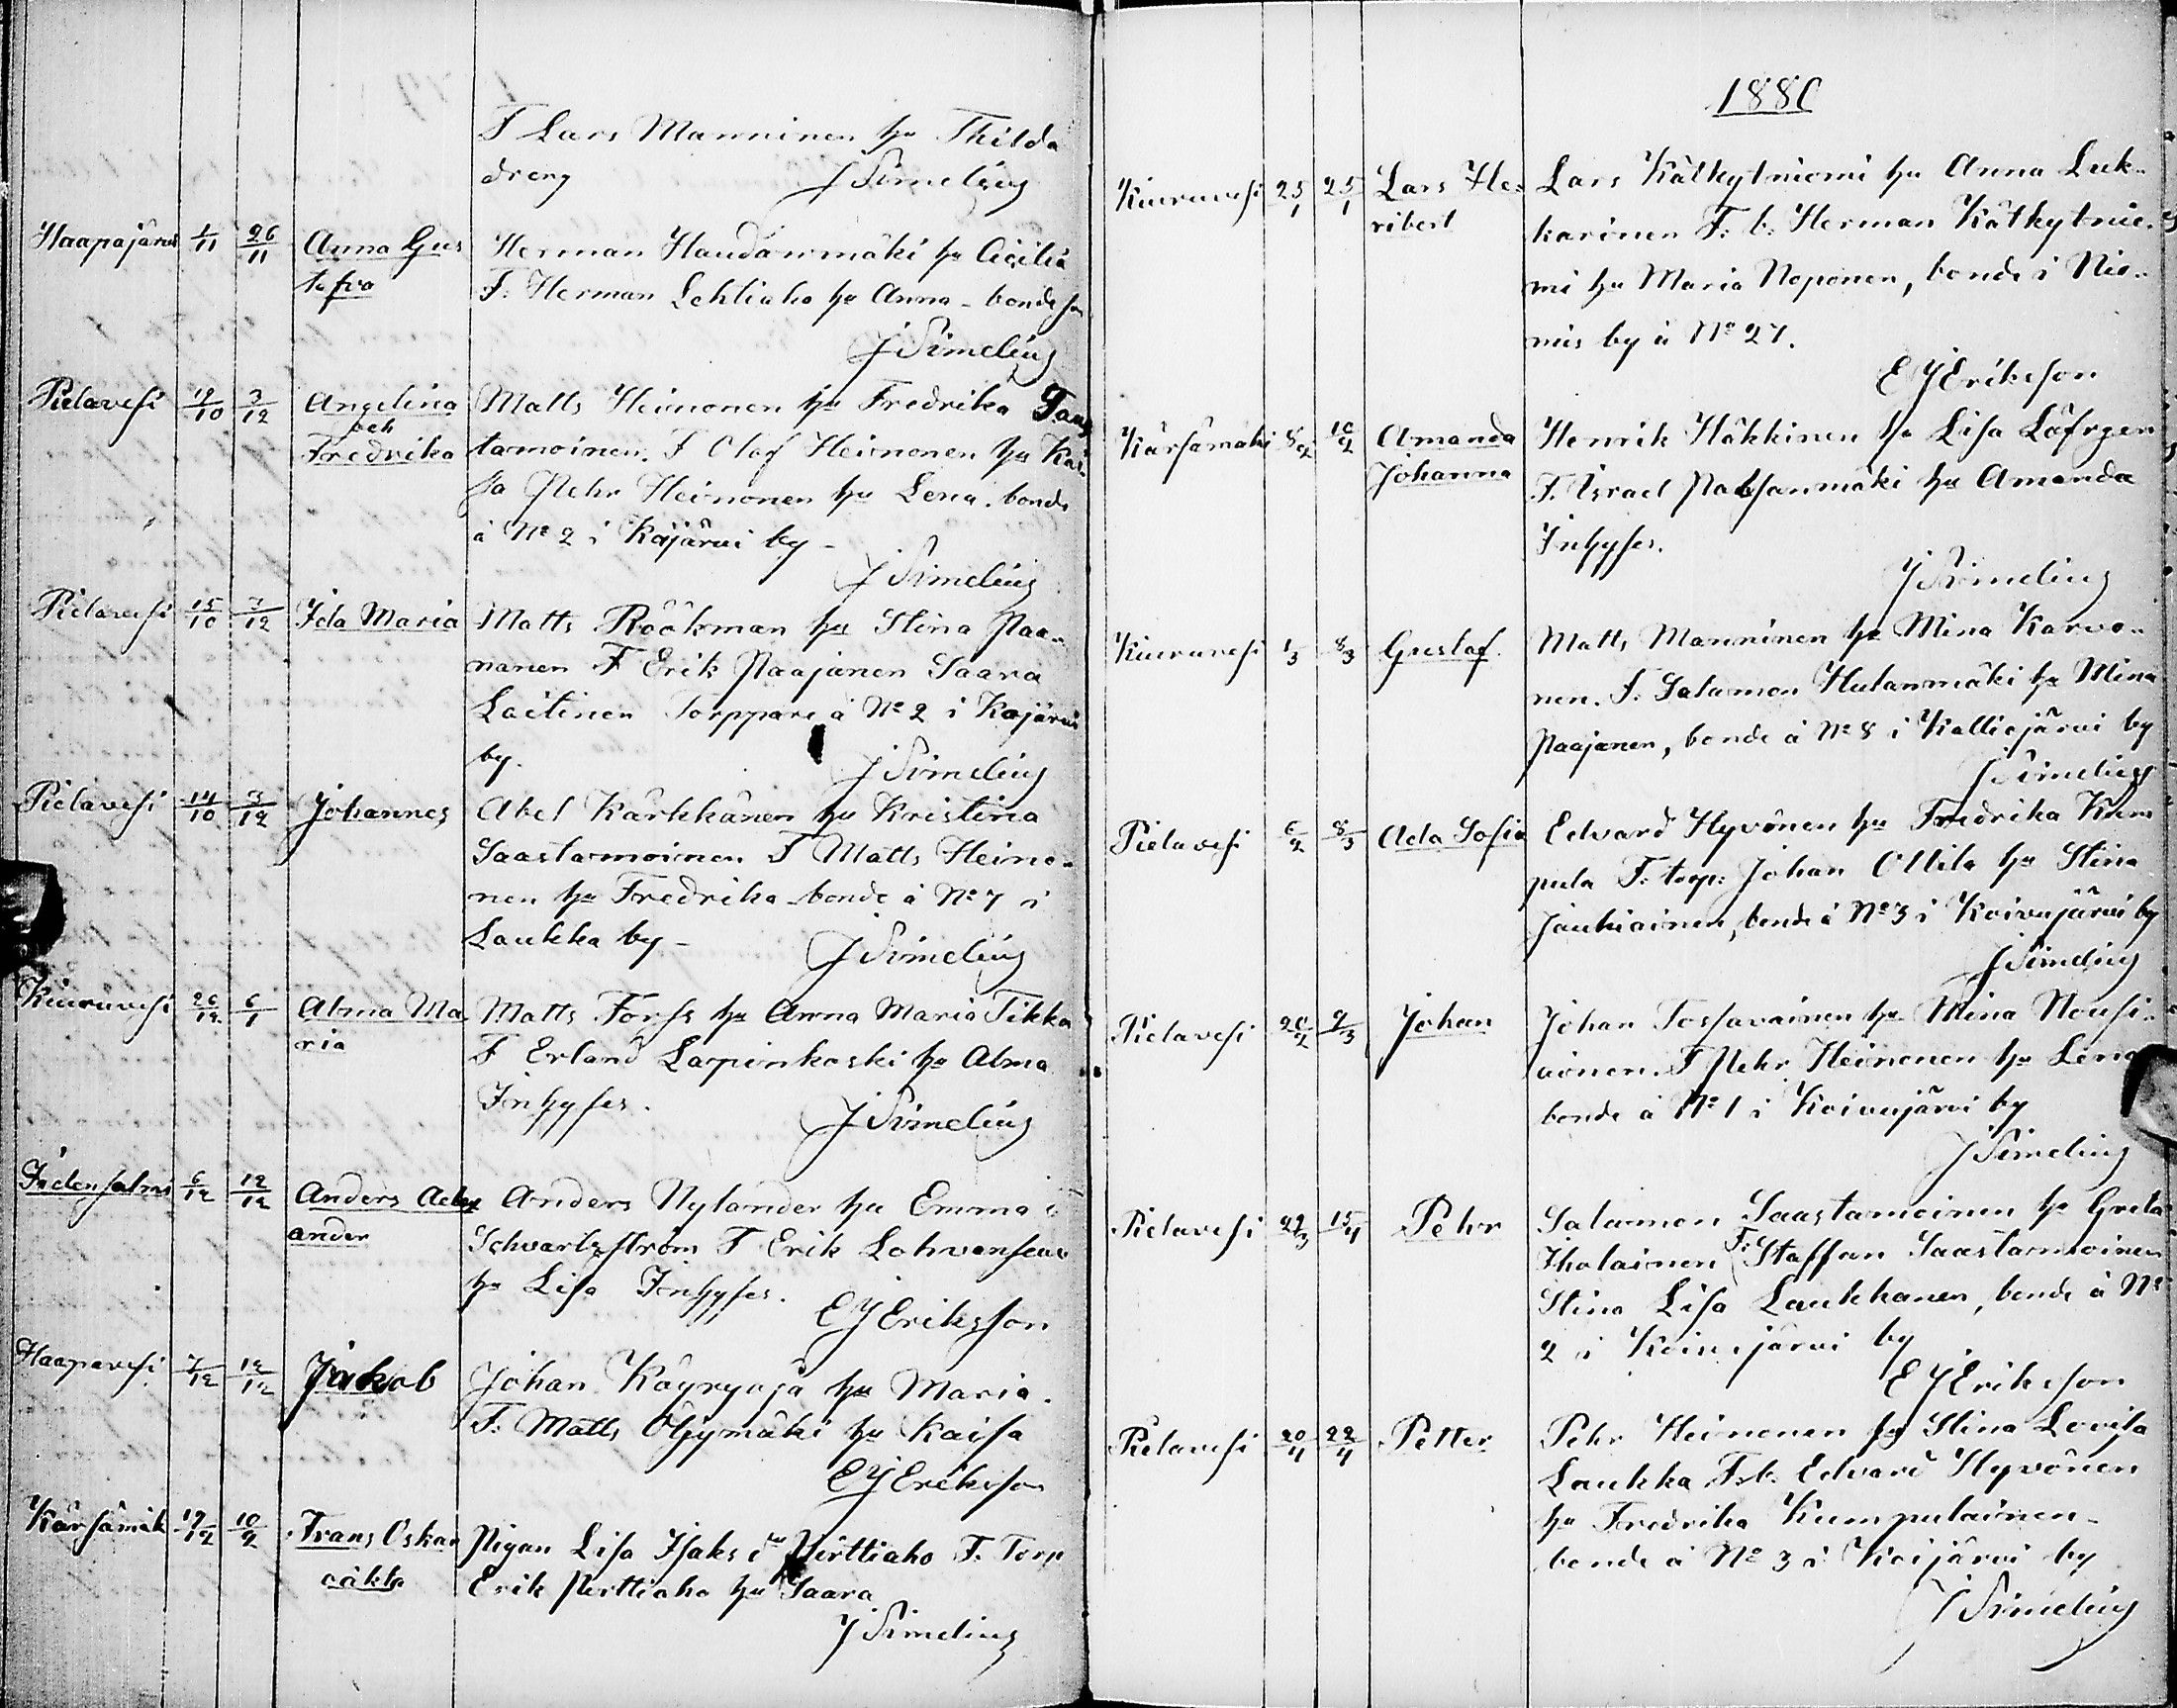 F Lars Manninen hu Thilda
dreng J Simelius
Haapajärvi 1/11 26/11 Anna Gus Herman Haudanmäki hu Cicilia
tafva F. Herman Lehtiaho hu Anna - bonde
J Simelius
Pielavesi 19/10 3/12 Angelina Matts Heinonen hu Fredrika
och
Fredrika tamoinen. F Olof Heinonen hu Kai
sa Pehr Heinonen hu Lena. bonde
å No 2 i Kojärvi by -
J Simelius
Pielavesi 15/10 3/12 Ida Maria Matts Röökman hu Stina Paa-
nanen F Erik Paajanen Saara
Laitinen Torppare å No 2 i Kojärvi
by. J Simelius
Pielavesi 14/10 3/12 Johannes Abel Kärkkänen hu Kristina
Saastamoinen F Matts Heino-
nen hu Fredrika bonde å No 7 i
Laukka by - J Simelius
Kiuruvesi 26/12 6/1 Alma Ma Matts Forss hu Anna Maria Tikka
ria F Erland Lapinkoski hu Alma
Inhyses. J Simelius
Idensalmi 6/12 12/12 Anders Anders Nylander hu Emma
ander Schvartzström F Erik
hu Lisa Inhyses. E J Eriksson
Haapavesi 7/12 12/12 Jakob Johan Käyryoja hu Maria.
F. Matts Öljymäki hu Kaisa
E J Eriksson
Kärsämäk 10/2 Frans Oskar Pigan Lisa Isaks Pirttiaho F. Torp
oäkta Erik Perttiaho hu Saara
J Simelius
1880
Kiuruvesi 25/1 25/1 Lars He- Lars Kätkytniemi hu Anna Luk-
ribert karinen F. b. Herman Kätkytnie-
mi hu Maria Noponen, bonde i Nie-
mis by å No 27.
E J Eriksson
Kärsämäki 8/2 10/2 Amanda Henrik Häkkinen hu Lisa Löfgren
Johanna F. Israel hu Amanda
Inhyses.
J Simelius
Kiuruvesi 1/3 8/3 Gustaf. Matts Manninen hu Mina Karvo-
nen. F. Salomon Hulanmäki hu Mina
Paajanen, bonde å No 8 i Kalliojärvi by
J Simelius
Pielavesi 6/2 8/3 Ada Sofia Edvard Hyvönen hu Fredrika Kum
pula F. torp: Johan Ollila hu Stina
Jauhiainen, bonde å No 3 i Koivujärvi by
J Simelius
Pielavesi 20/2 9/3 Johan Johan Tossavainen hu Mina Nousi-
ainen. F Pehr Heinonen hu Lena
bonde å No 1 i Koivujärvi by
J Simelius
Pielavesi 22/3 15/4 Pehr Salomon Saastamoinen hu Greta
Iholainen F: Staffan Saastamoinen
Stina Lisa Laukkanen, bonde å No
2 i Koivujärvi by
E J Eriksson
Pielavesi 20/4 22/4 Petter Pehr Heinonen hu Stina Lovisa
Laukka F. b. Edvard Hyvönen
hu Fredrika Kumpulainen-
bonde å No 3 i Koijärvi by
J Simelius